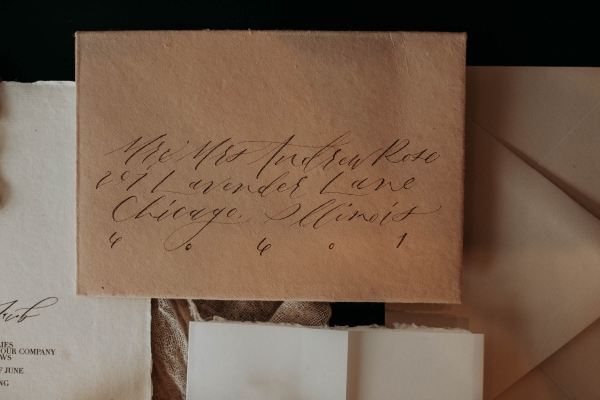 Mr & Mrs Andrew Rose
271 Lavender Lane
Chicago, Illinois
6 0 6 0 1
OUR COMPANY
JUNE